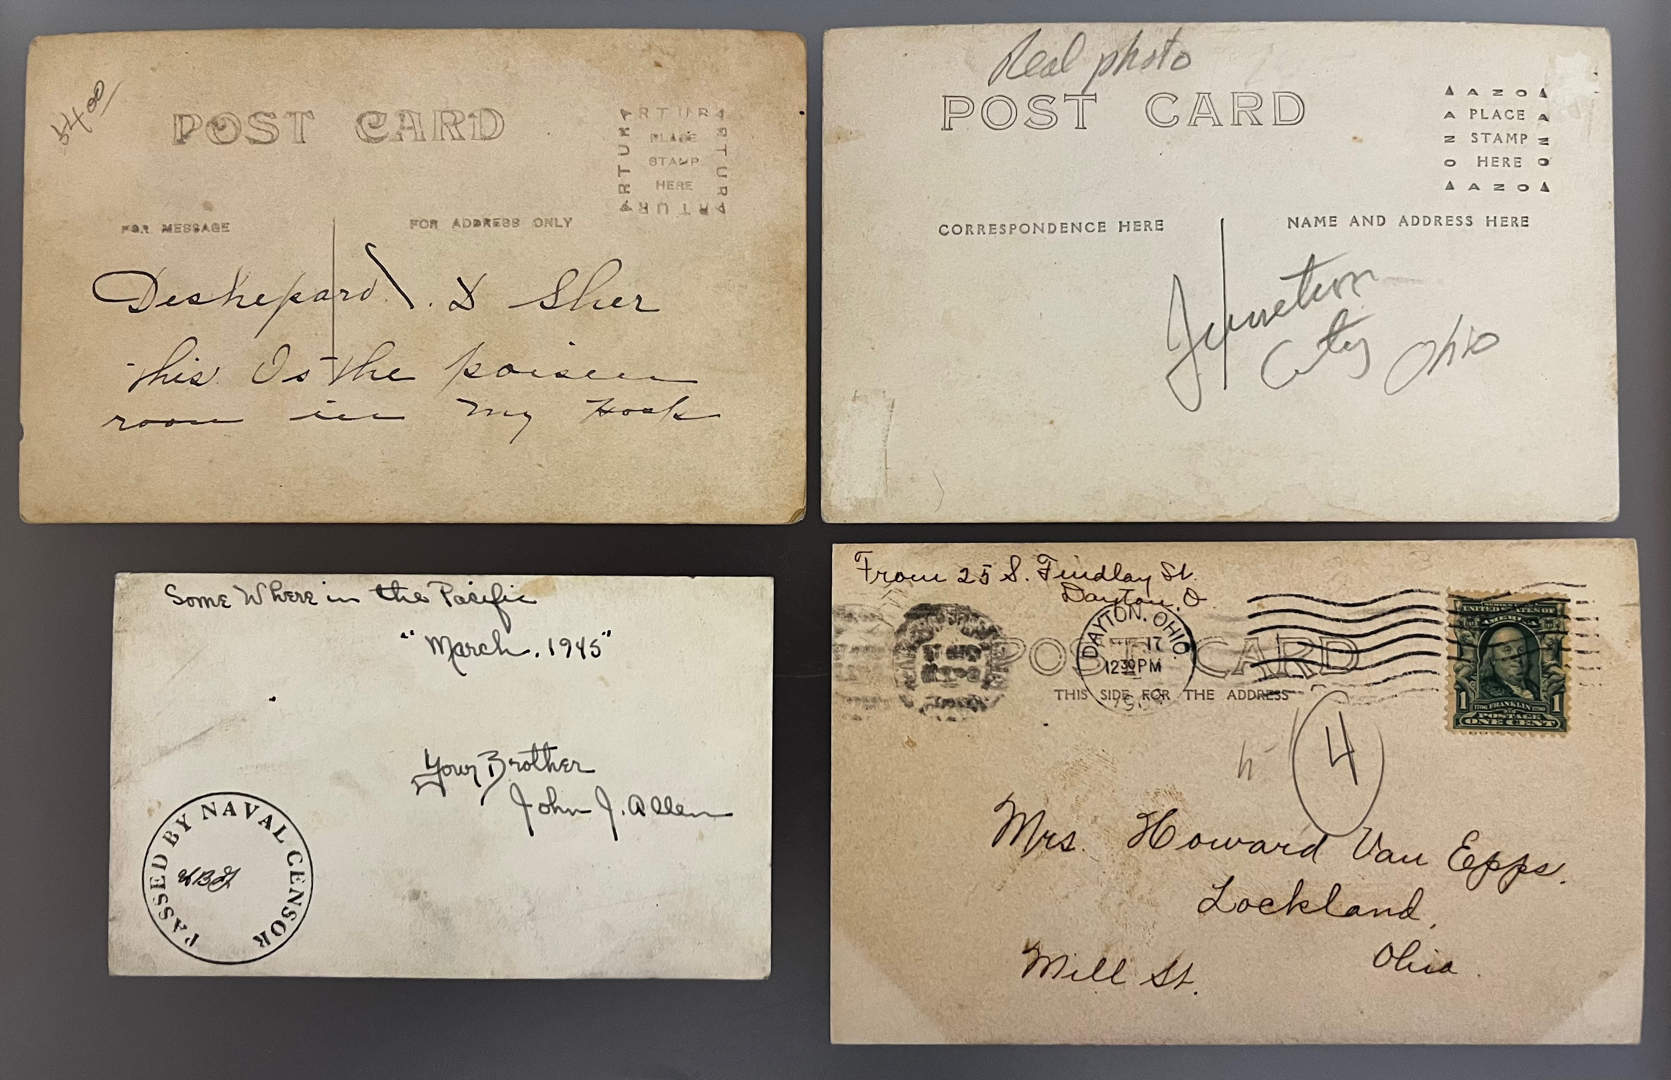 5400
POST CARD
ARTURA
ARTURA
PLACE
STAMP
HERE
ARTURA
ARTURA
FOR MESSAGE
FOR ADDRESS ONLY
Deshepard . D Sher
this Is the poiseen
room in my Hook
Real photo
POST CARD
AZO
AZO
PLACE
STAMP
HERE
AZO
AZO
CORRESPONDENCE HERE
NAME AND ADDRESS HERE
Junction
City Ohio
Some Where in the Pacific
"March. 1945"
Your Brother
John J. Allen
PASSED BY NAVAL CENSOR
From 25 S. Findlay St.
Dayton. O
DAYTON. OHIO
17
12 30 PM
POST CARD
THIS SIDE FOR THE ADDRESS
UNITED STATES OF
AMERICA
1 FRANKLIN 1
POSTAGE
ONE CENT
4
Mrs. Howard Van Epps.
Lockland,
Ohio.
Mill St.